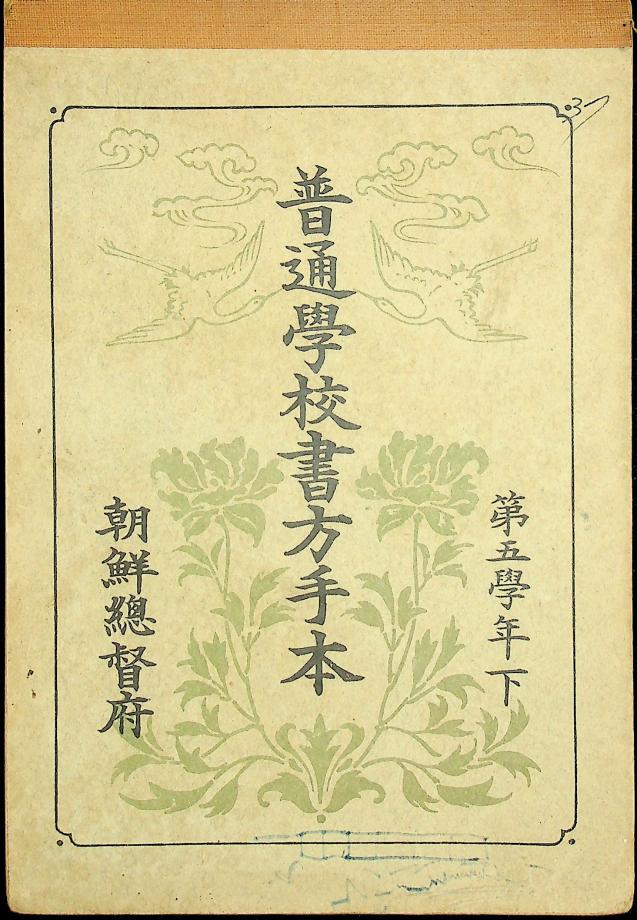 第五學年下
普通學校書方手本
朝鮮總督府